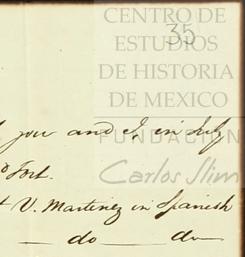 CENTRO DE
35
ESTUDIOS
DE HISTORIA
DE MEXICO
you and I, in July
FUNDACIÓN
Fort.
Carlos Slim
V. Martinez in Spanish
do do